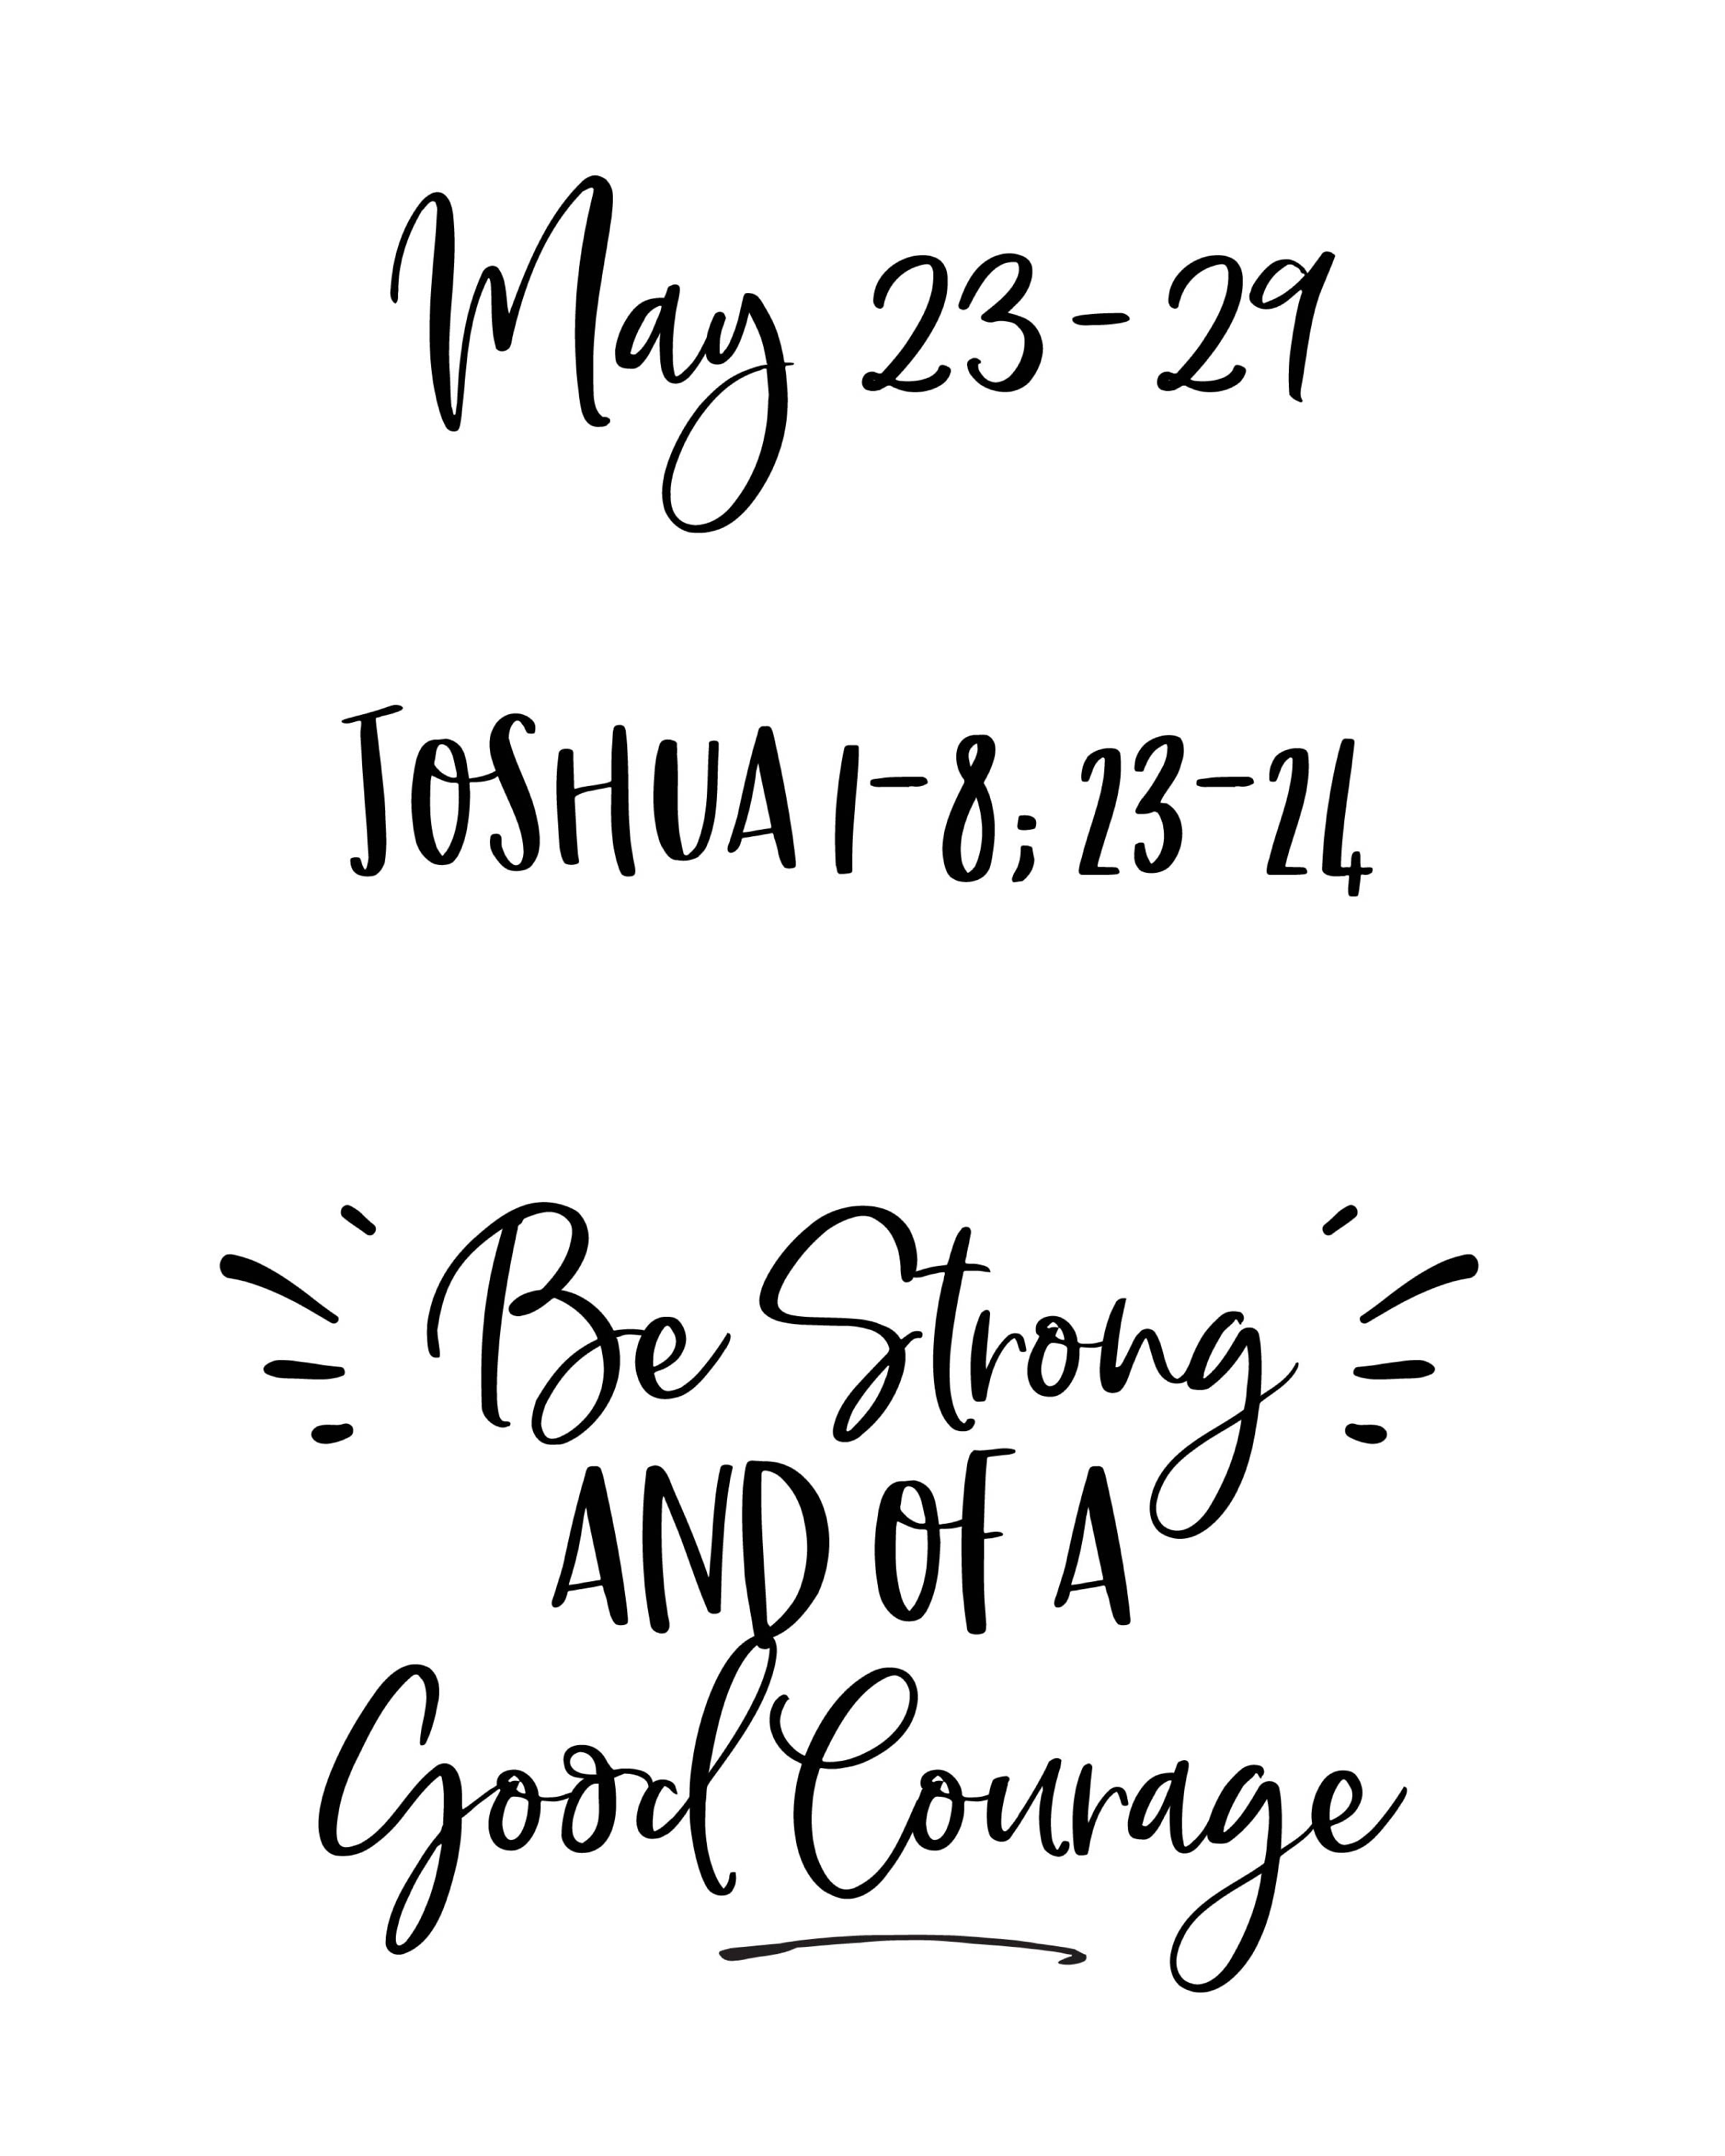 May 23-29
JOSHUA 1-8; 23-24
Be Strong
AND OF A
Good Courage